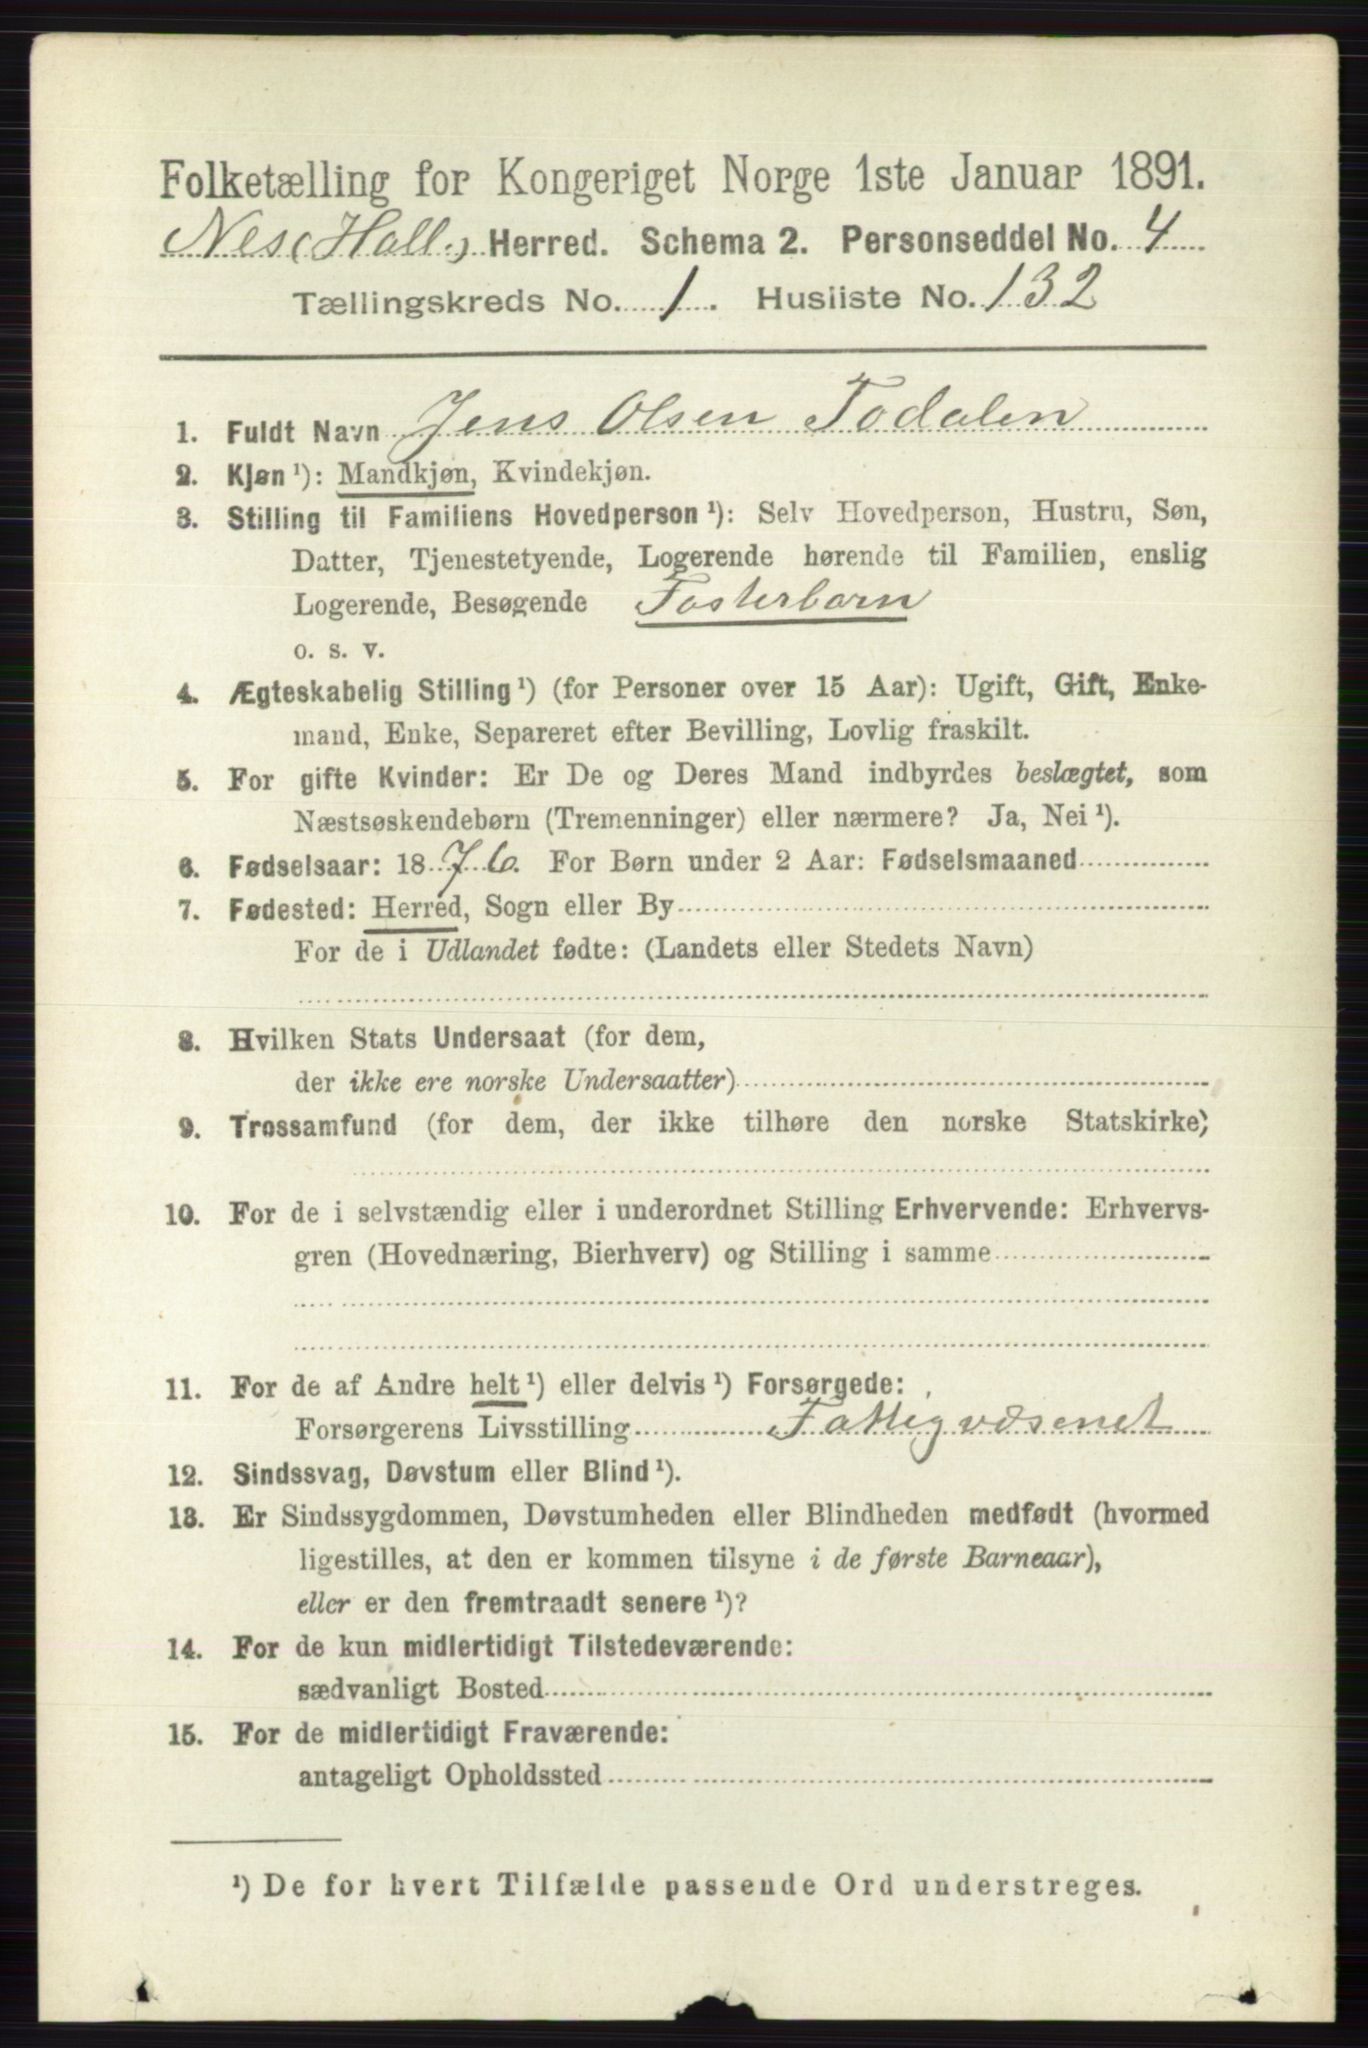 Folketælling for Kongeriget Norge 1ste Januar 1891.
Nes (Hall.) Herred. Schema 2. Personseddel No. 4
Tællingskreds No. 1. Husliste No. 132
1. Fuldt Navn Jens Olsen Todalen
2. Kjøn ¹): Mandkjøn, Kvindekjøn.
3. Stilling til Familiens Hovedperson ¹): Selv Hovedperson, Hustru, Søn,
Datter, Tjenestetyende, Logerende hørende til Familien, enslig
Logerende, Besøgende Fosterbarn
o. s. v.
4. Ægteskabelig Stilling ¹) (for Personer over 15 Aar): Ugift, Gift, Enke-
mand, Enke, Separeret efter Bevilling, Lovlig fraskilt.
5. For gifte Kvinder: Er De og Deres Mand indbyrdes beslægtet, som
Næstsøskendebørn (Tremenninger) eller nærmere? Ja, Nei ¹).
6. Fødselsaar: 1876. For Børn under 2 Aar: Fødselsmaaned
7. Fødested: Herred, Sogn eller By
For de i Udlandet fødte: (Landets eller Stedets Navn)
8. Hvilken Stats Undersaat (for dem,
der ikke ere norske Undersaatter)
9. Trossamfund (for dem, der ikke tilhøre den norske Statskirke)
10. For de i selvstændig eller i underordnet Stilling Erhvervende: Erhvervs-
gren (Hovednæring, Bierhverv) og Stilling i samme
11. For de af Andre helt ¹) eller delvis ¹) Forsørgede:
Forsørgerens Livsstilling Fattigvæsenet
12. Sindssvag, Døvstum eller Blind ¹).
13. Er Sindssygdommen, Døvstumheden eller Blindheden medfødt (hvormed
ligestilles, at den er kommen tilsyne i de første Barneaar),
eller er den fremtraadt senere ¹)?
14. For de kun midlertidigt Tilstedeværende:
sædvanligt Bosted
15. For de midlertidigt Fraværende:
antageligt Opholdssted
¹) De for hvert Tilfælde passende Ord understreges.